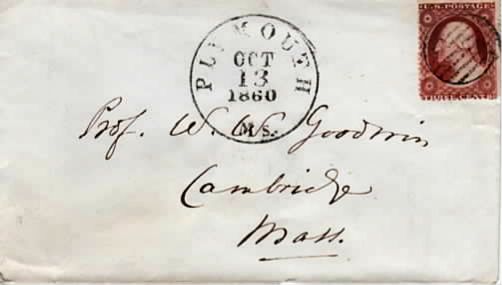 U.S. POSTAGE
THREE CENTS
PLYMOUTH
OCT
13
1860
Ms.
Prof. W. W. Goodwin
Cambridge
Mass.